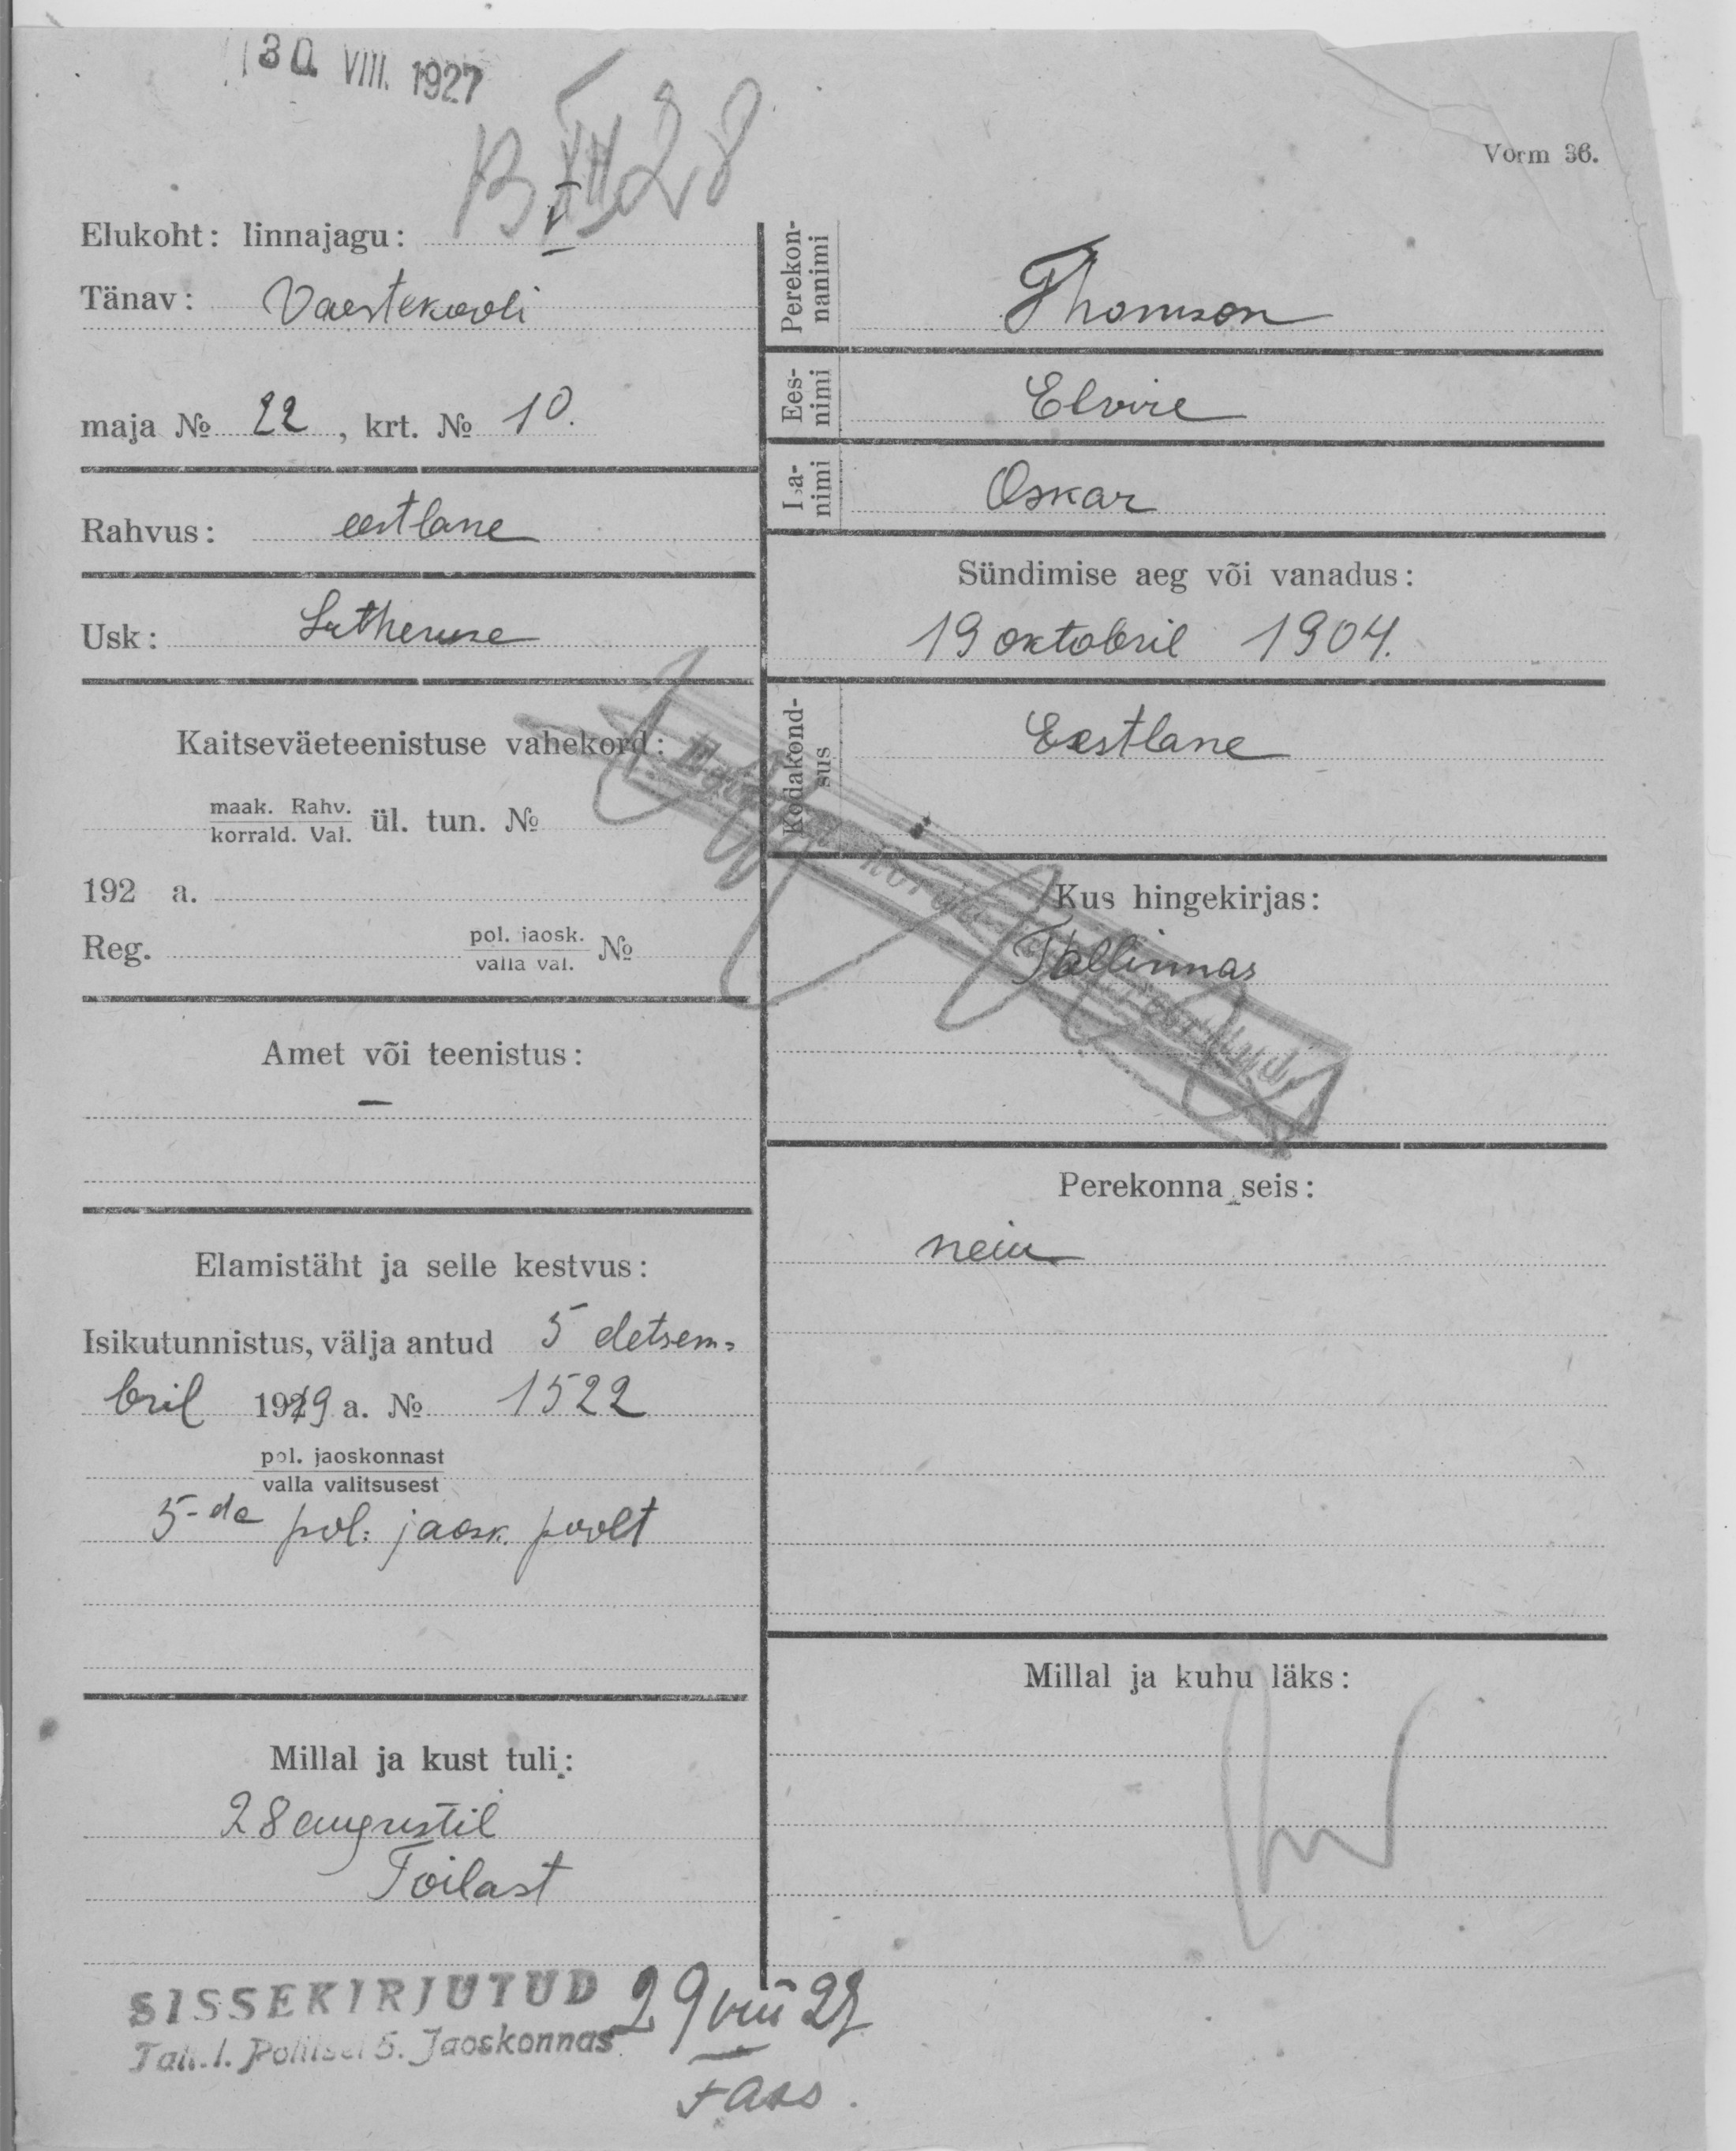 30 VIII. 1927
B XII 28
Vorm 36.
Elukoht: linnajagu: V
Tänav: Vaestekooli
maja № 22, krt. № 10.
Rahvus: eestlane
Usk: Lutheruse
Kaitseväeteenistuse vahekord:
maak. Rahv.
korrald. Val. ül. tun. №
192 a.
Reg. pol. jaosk. №
valla val.
Amet või teenistus:
—
Elamistäht ja selle kestvus:
Isikutunnistus, välja antud 5 detsem-
bril 1919 a. № 1522
pol. jaoskonnast
valla valitsusest
5-da pol. jaosk. poolt
Millal ja kust tuli:
28 augustil
Toilast
Perekon-
nanimi
Thomson
Ees-
nimi
Elvire
Isa-
nimi
Oskar
Sündimise aeg või vanadus:
19 oktobril 1904.
Kodakond-
sus
Eestlane
Kus hingekirjas:
Tallinnas
Perekonna seis:
neiu
Millal ja kuhu läks:
SISSEKIRJUTUD 29 VIII 27
Tall. l. Politsei 5. Jaoskonnas